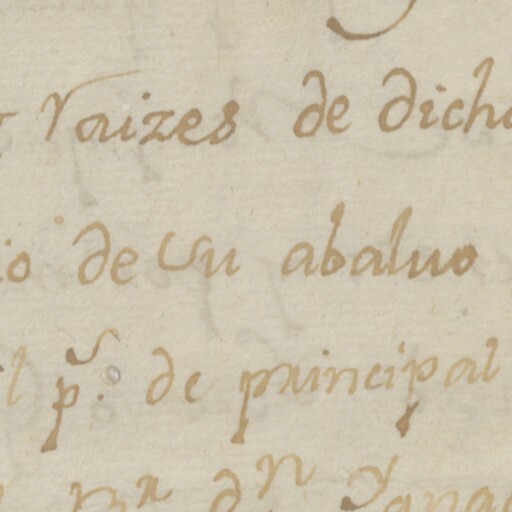 raizes de dich
io de su abaluo
il p.o de principal